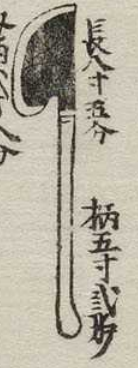 長八寸五分
柄五寸弐歩